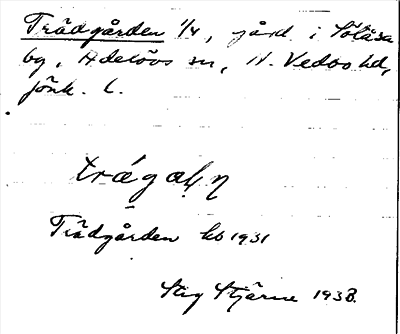 Trädgården 1/4, gård i Sölåsa
by, Adelövs sn, N. Vedbo hd,
Jönk. l.
trágạḷn
Trädgården kb 1931
Stig Stjärne 1938.